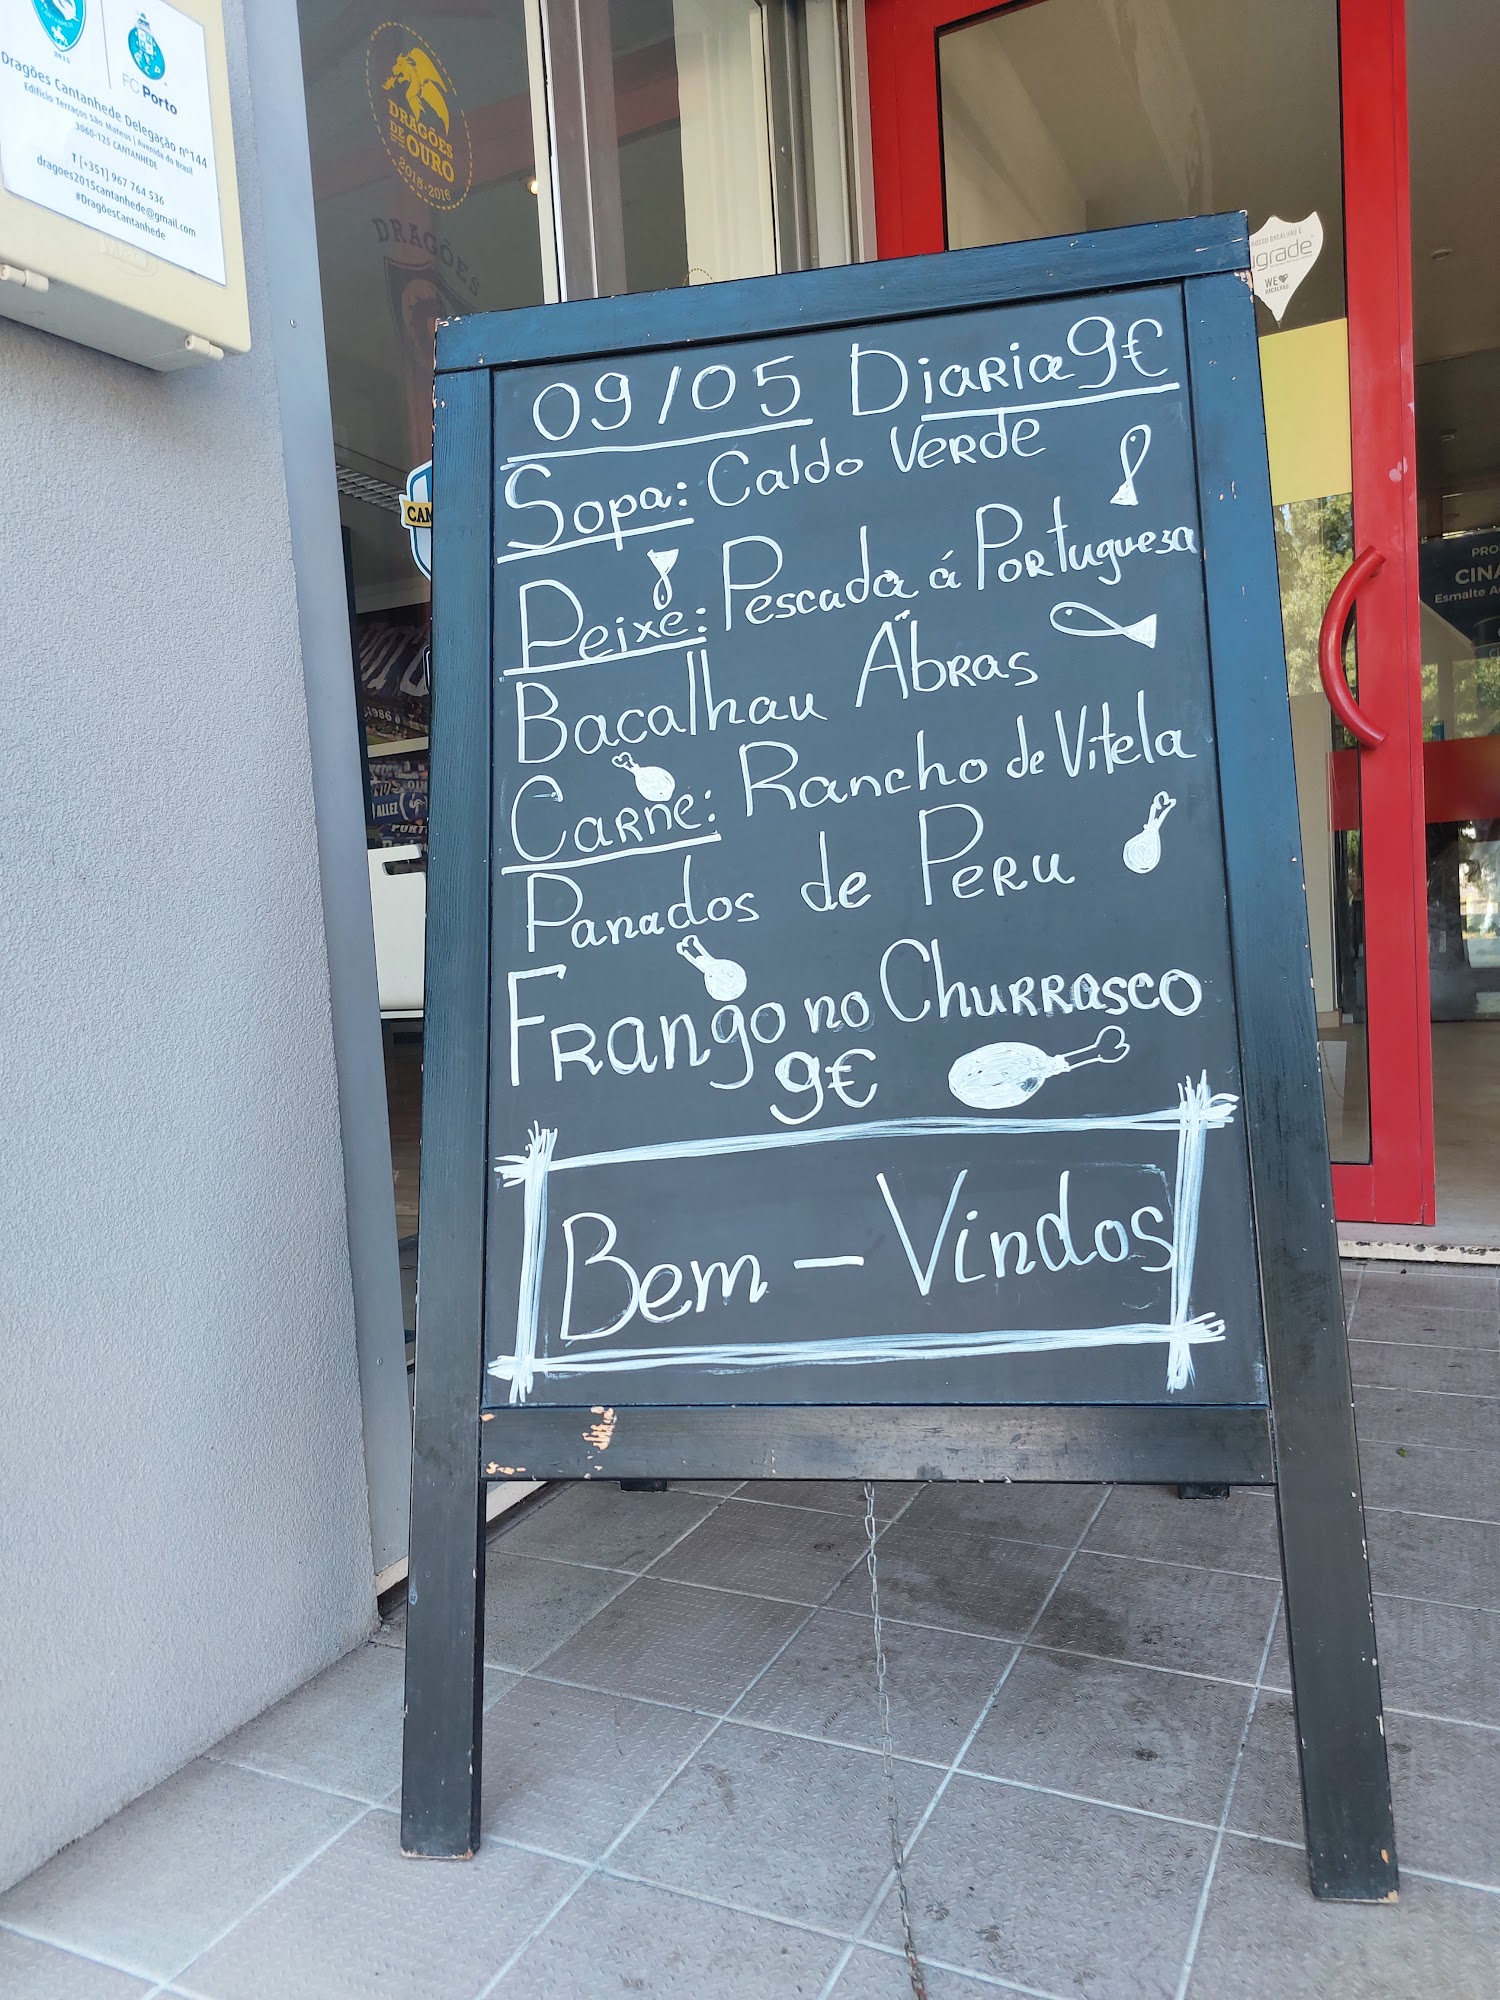 2015
FC Porto
Dragões Cantanhede Delegação nº144
Edifício Terraços São Mateus | Avenida do Brasil
3060-125 CANTANHEDE
T [+351] 967 764 536
dragoes2015cantanhede@gmail.com
#DragõesCantanhede
DRAGÕES
DE
OURO
DRAGÕES
CAN
1986
ALLEZ
09/05 Diaria 9€
Sopa: Caldo Verde
Peixe: Pescada á Portuguesa
Bacalhau Á Bras
Carne: Rancho de Vitela
Panados de Peru
Frango no Churrasco
9€
Bem-Vindos
NOSSO BACALHAU É
ugrade
WE
BACALHAU
PRO
CINA
Esmalte A